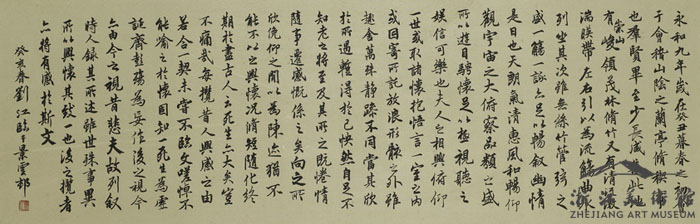 永和九年歲在癸丑暮春之初
于會稽山陰之蘭亭脩禊事
也羣賢畢至少長咸集此地
有崇山峻領茂林脩竹又有清流激
湍映帶左右引以為流觴曲水
列坐其次雖無絲竹管弦之
盛一觴一詠亦足以暢敘幽情
是日也天朗氣清惠風和暢仰
觀宇宙之大俯察品類之盛
所以遊目騁懷足以極視聽之
娛信可樂也夫人之相與俯仰
一世或取諸懷抱悟言一室之內
或因寄所託放浪形骸之外雖
趣舍萬殊靜躁不同當其欣
於所遇暫得於己怏然自足不
知老之將至及其所之既惓情
隨事遷感慨係之矣向之所
欣俛仰之間以為陳迹猶不
能不以之興懷況脩短隨化終
期於盡古人云死生亦大矣豈
不痛哉每攬昔人興感之由
若合一契未嘗不臨文嗟悼不
能喻之於懷固知一死生為虛
誕齊彭殤為妄作後之視今
亦由今之視昔悲夫故列敘
時人錄其所述雖世殊事異
所以興懷其致一也後之攬者
亦將有感於斯文
癸亥春劉江臨于景雲邨
浙江美術館
ZHEJIANG ART MUSEUM